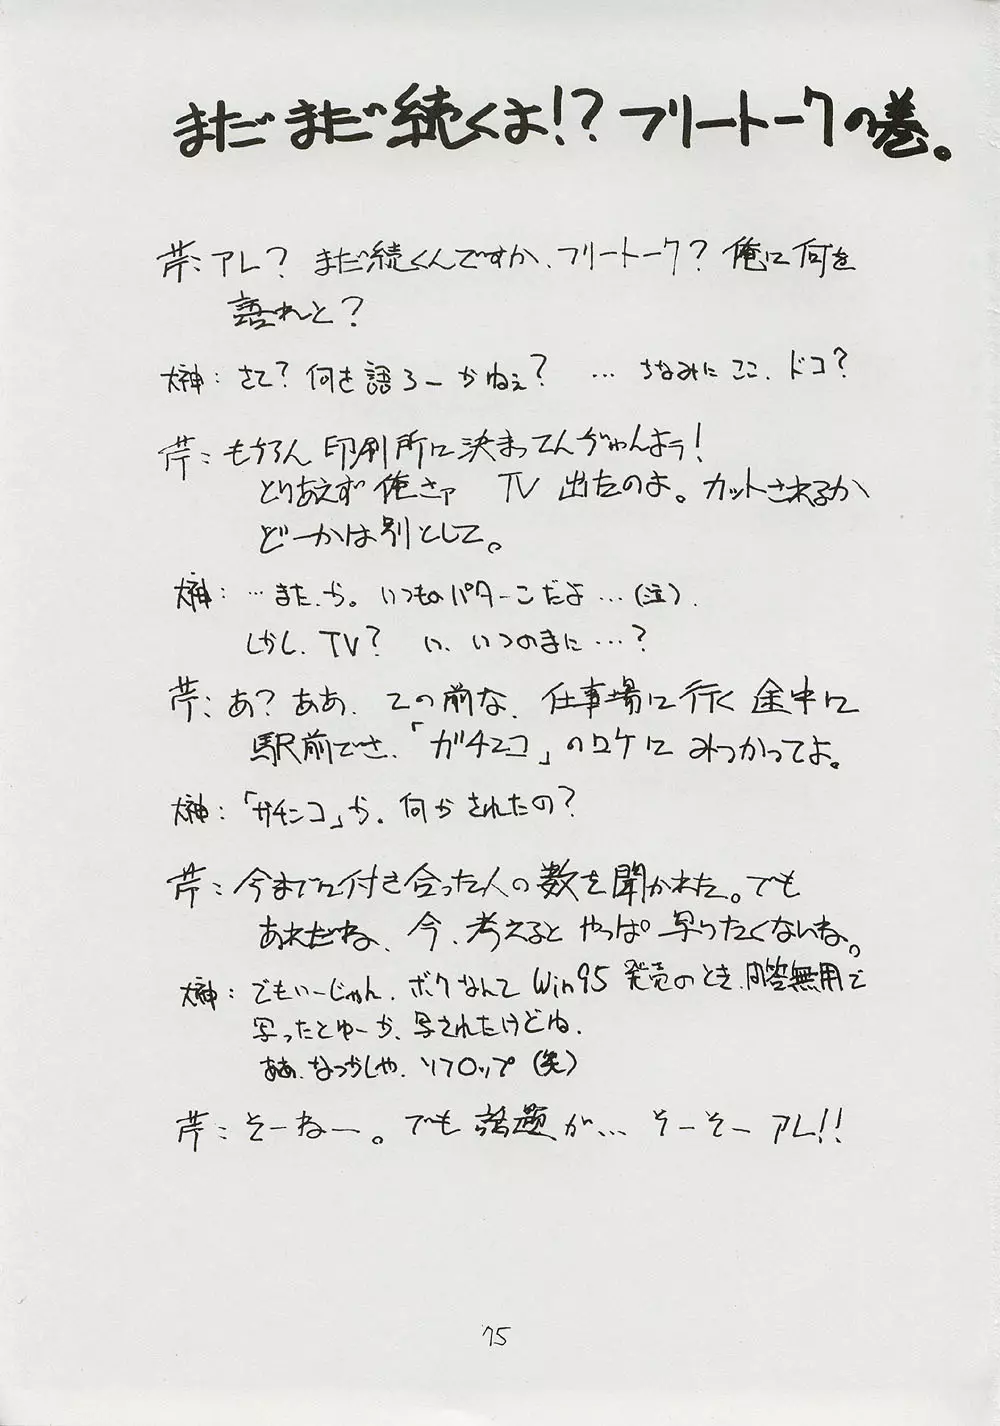 まだまだ続くよ!?フリートークの巻。
芹:アレ? まだ続くんですか、フリートーク? 俺に何を
語れと?
大神:さて? 何を語ろーかねぇ? … ちなみにここ、ドコ?
芹:もちろん印刷所に決まってんぢゃんよう!
とりあえず俺さァ TV 出たのよ。カットされるか
どーかは別として。
大神:…また、か。いつものパターンだよ…(泣)、
しかし、TV? い、いつのまに…?
芹:あ?ああ、この前な、仕事場に行く途中に
駅前でさ、「ガチンコ」のロケにみつかってよ。
大神:「ガチンコ」か。何かされたの?
芹:今までに付き合った人の数を聞かれた。でも
あれだね、今、考えるとやっぱ写りたくないね。
大神:でもいーじゃん、ボクなんてWin95発売のとき、問答無用で
写ったとゆーか、写されたけどね、
ああ、なつかしや、ソフロップ(笑)
芹:そーねー。でも話題が… そーそーアレ!!
75